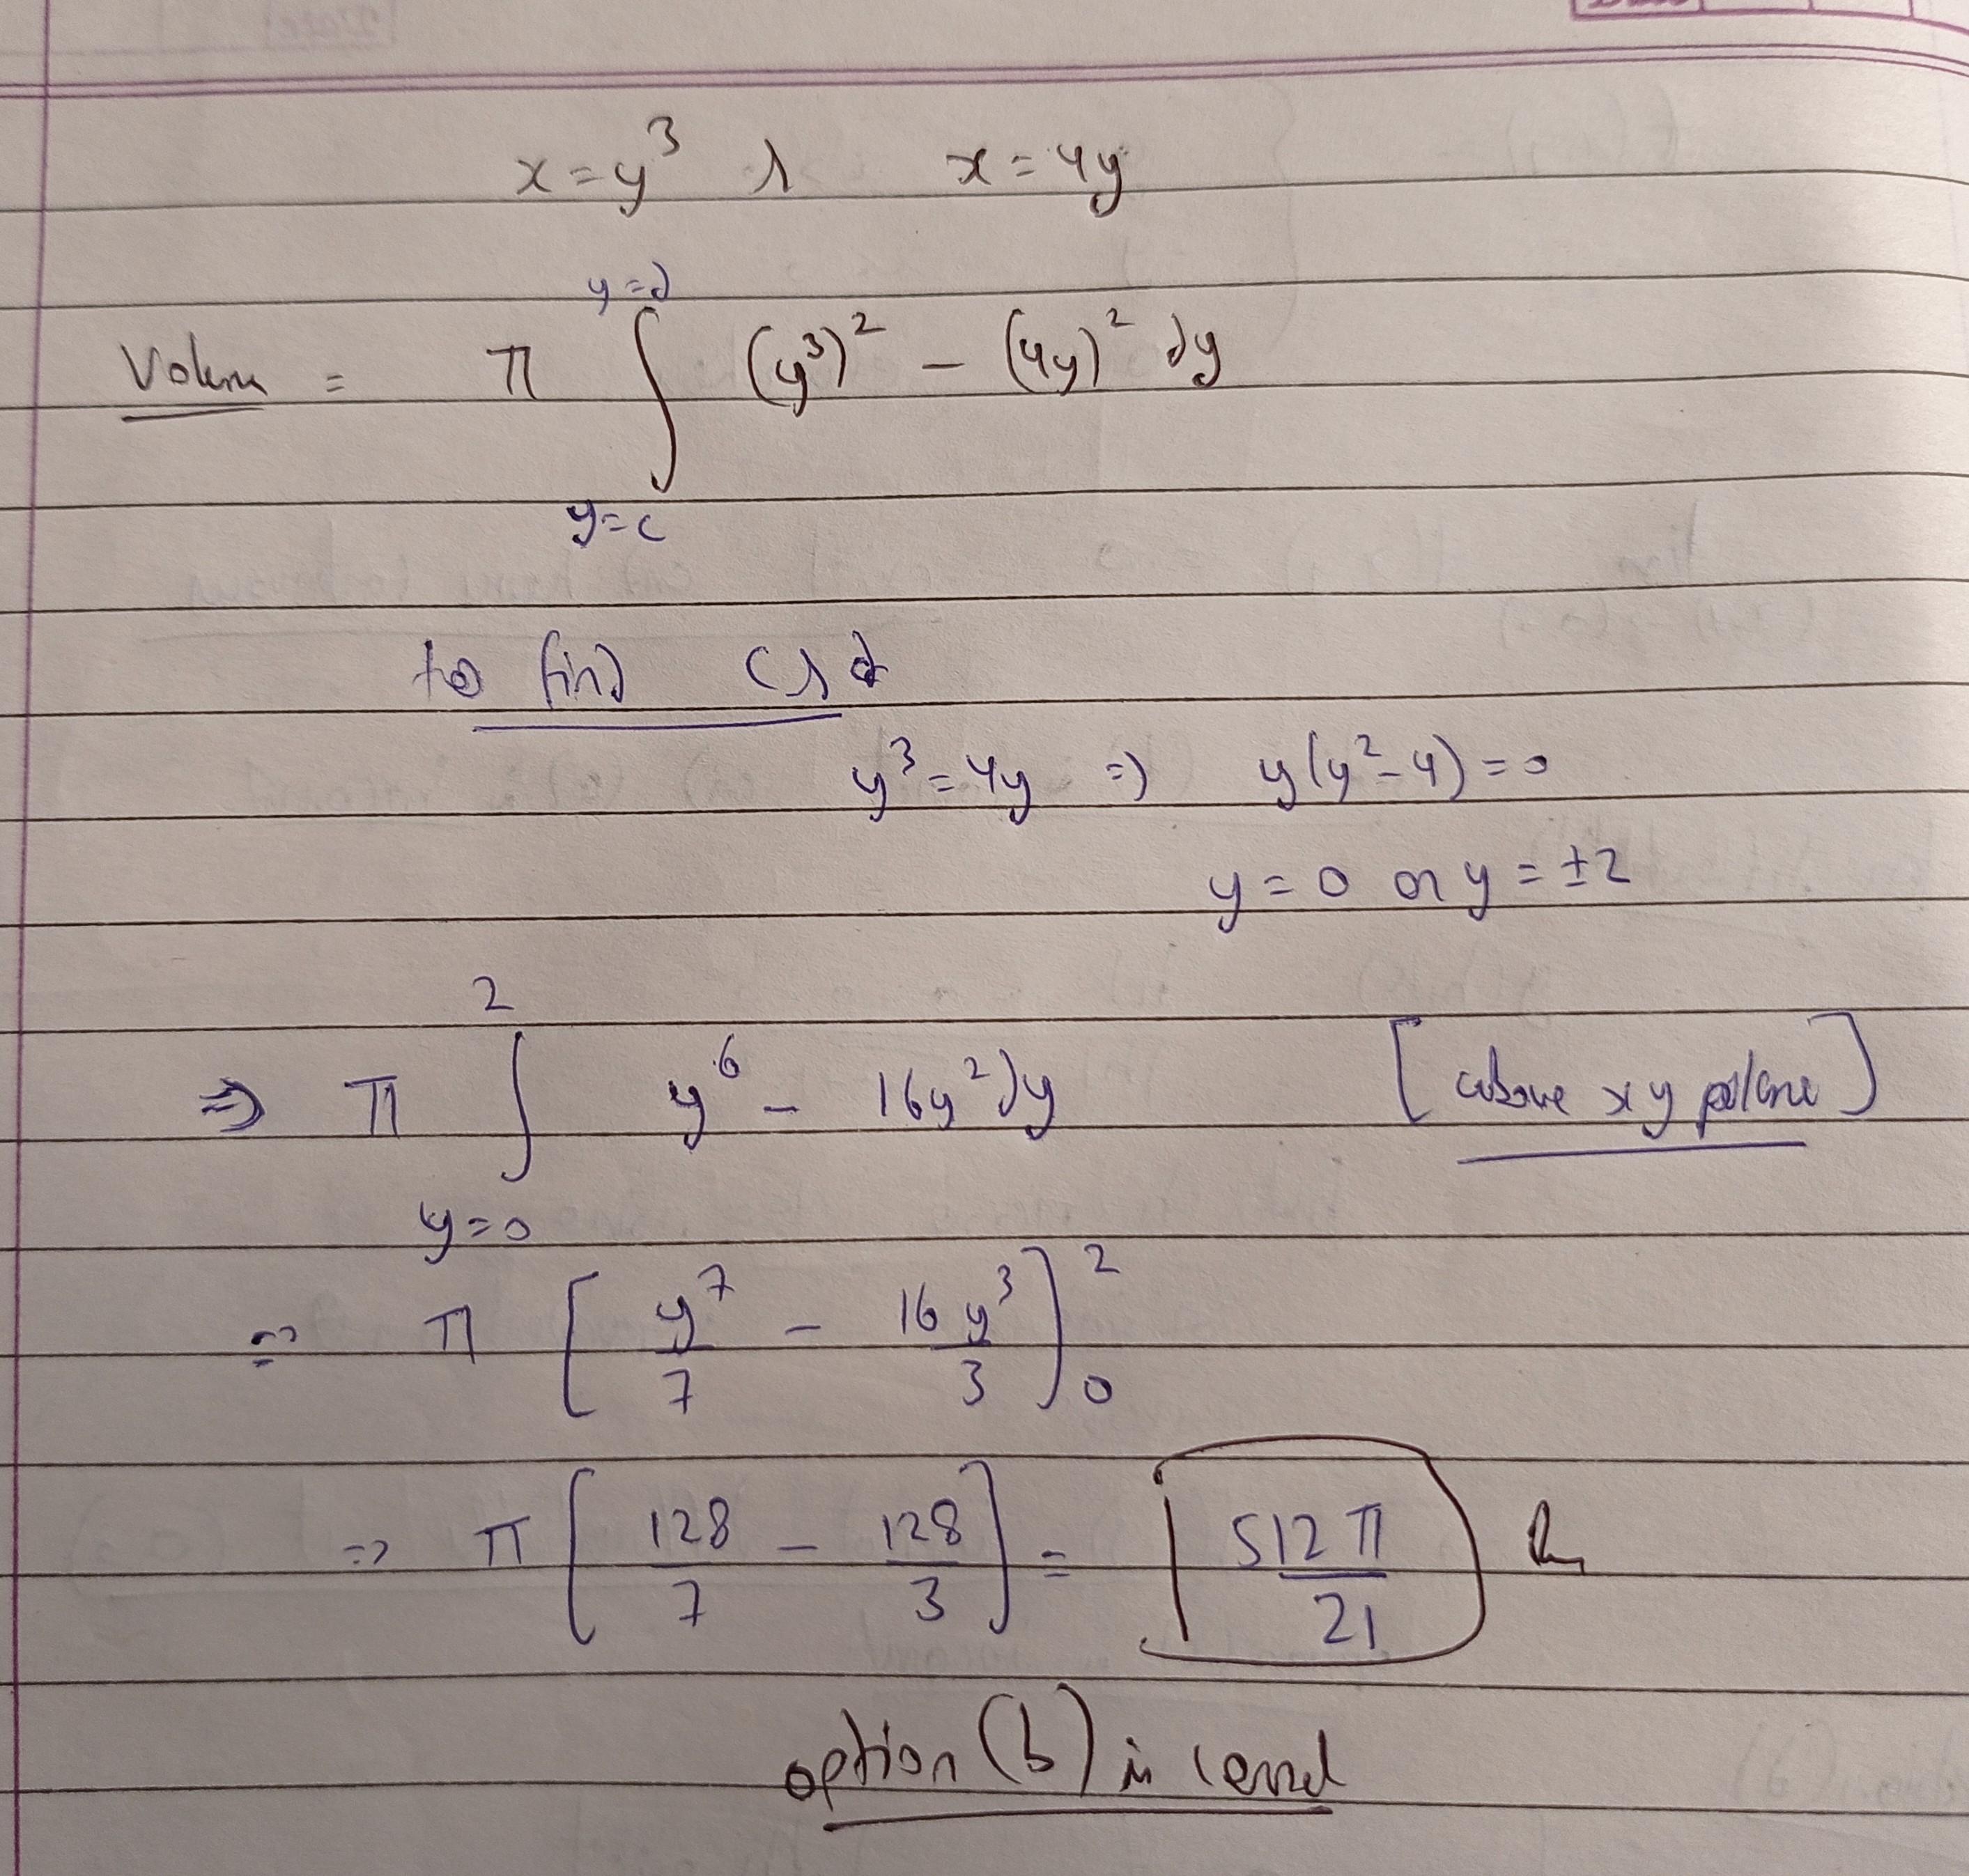 x = y³ & x = 4y
Volume = π ∫_{y=c}^{y=d} (y³)² − (4y)² dy
to find c & d
y³ = 4y ⇒ y(y² − 4) = 0
y = 0 or y = ±2
⇒ π ∫_{y=0}^{2} y⁶ − 16y² dy [above xy plane]
⇒ π [y⁷/7 − 16y³/3]₀²
⇒ π [128/7 − 128/3] = 512π/21
option (b) is correct